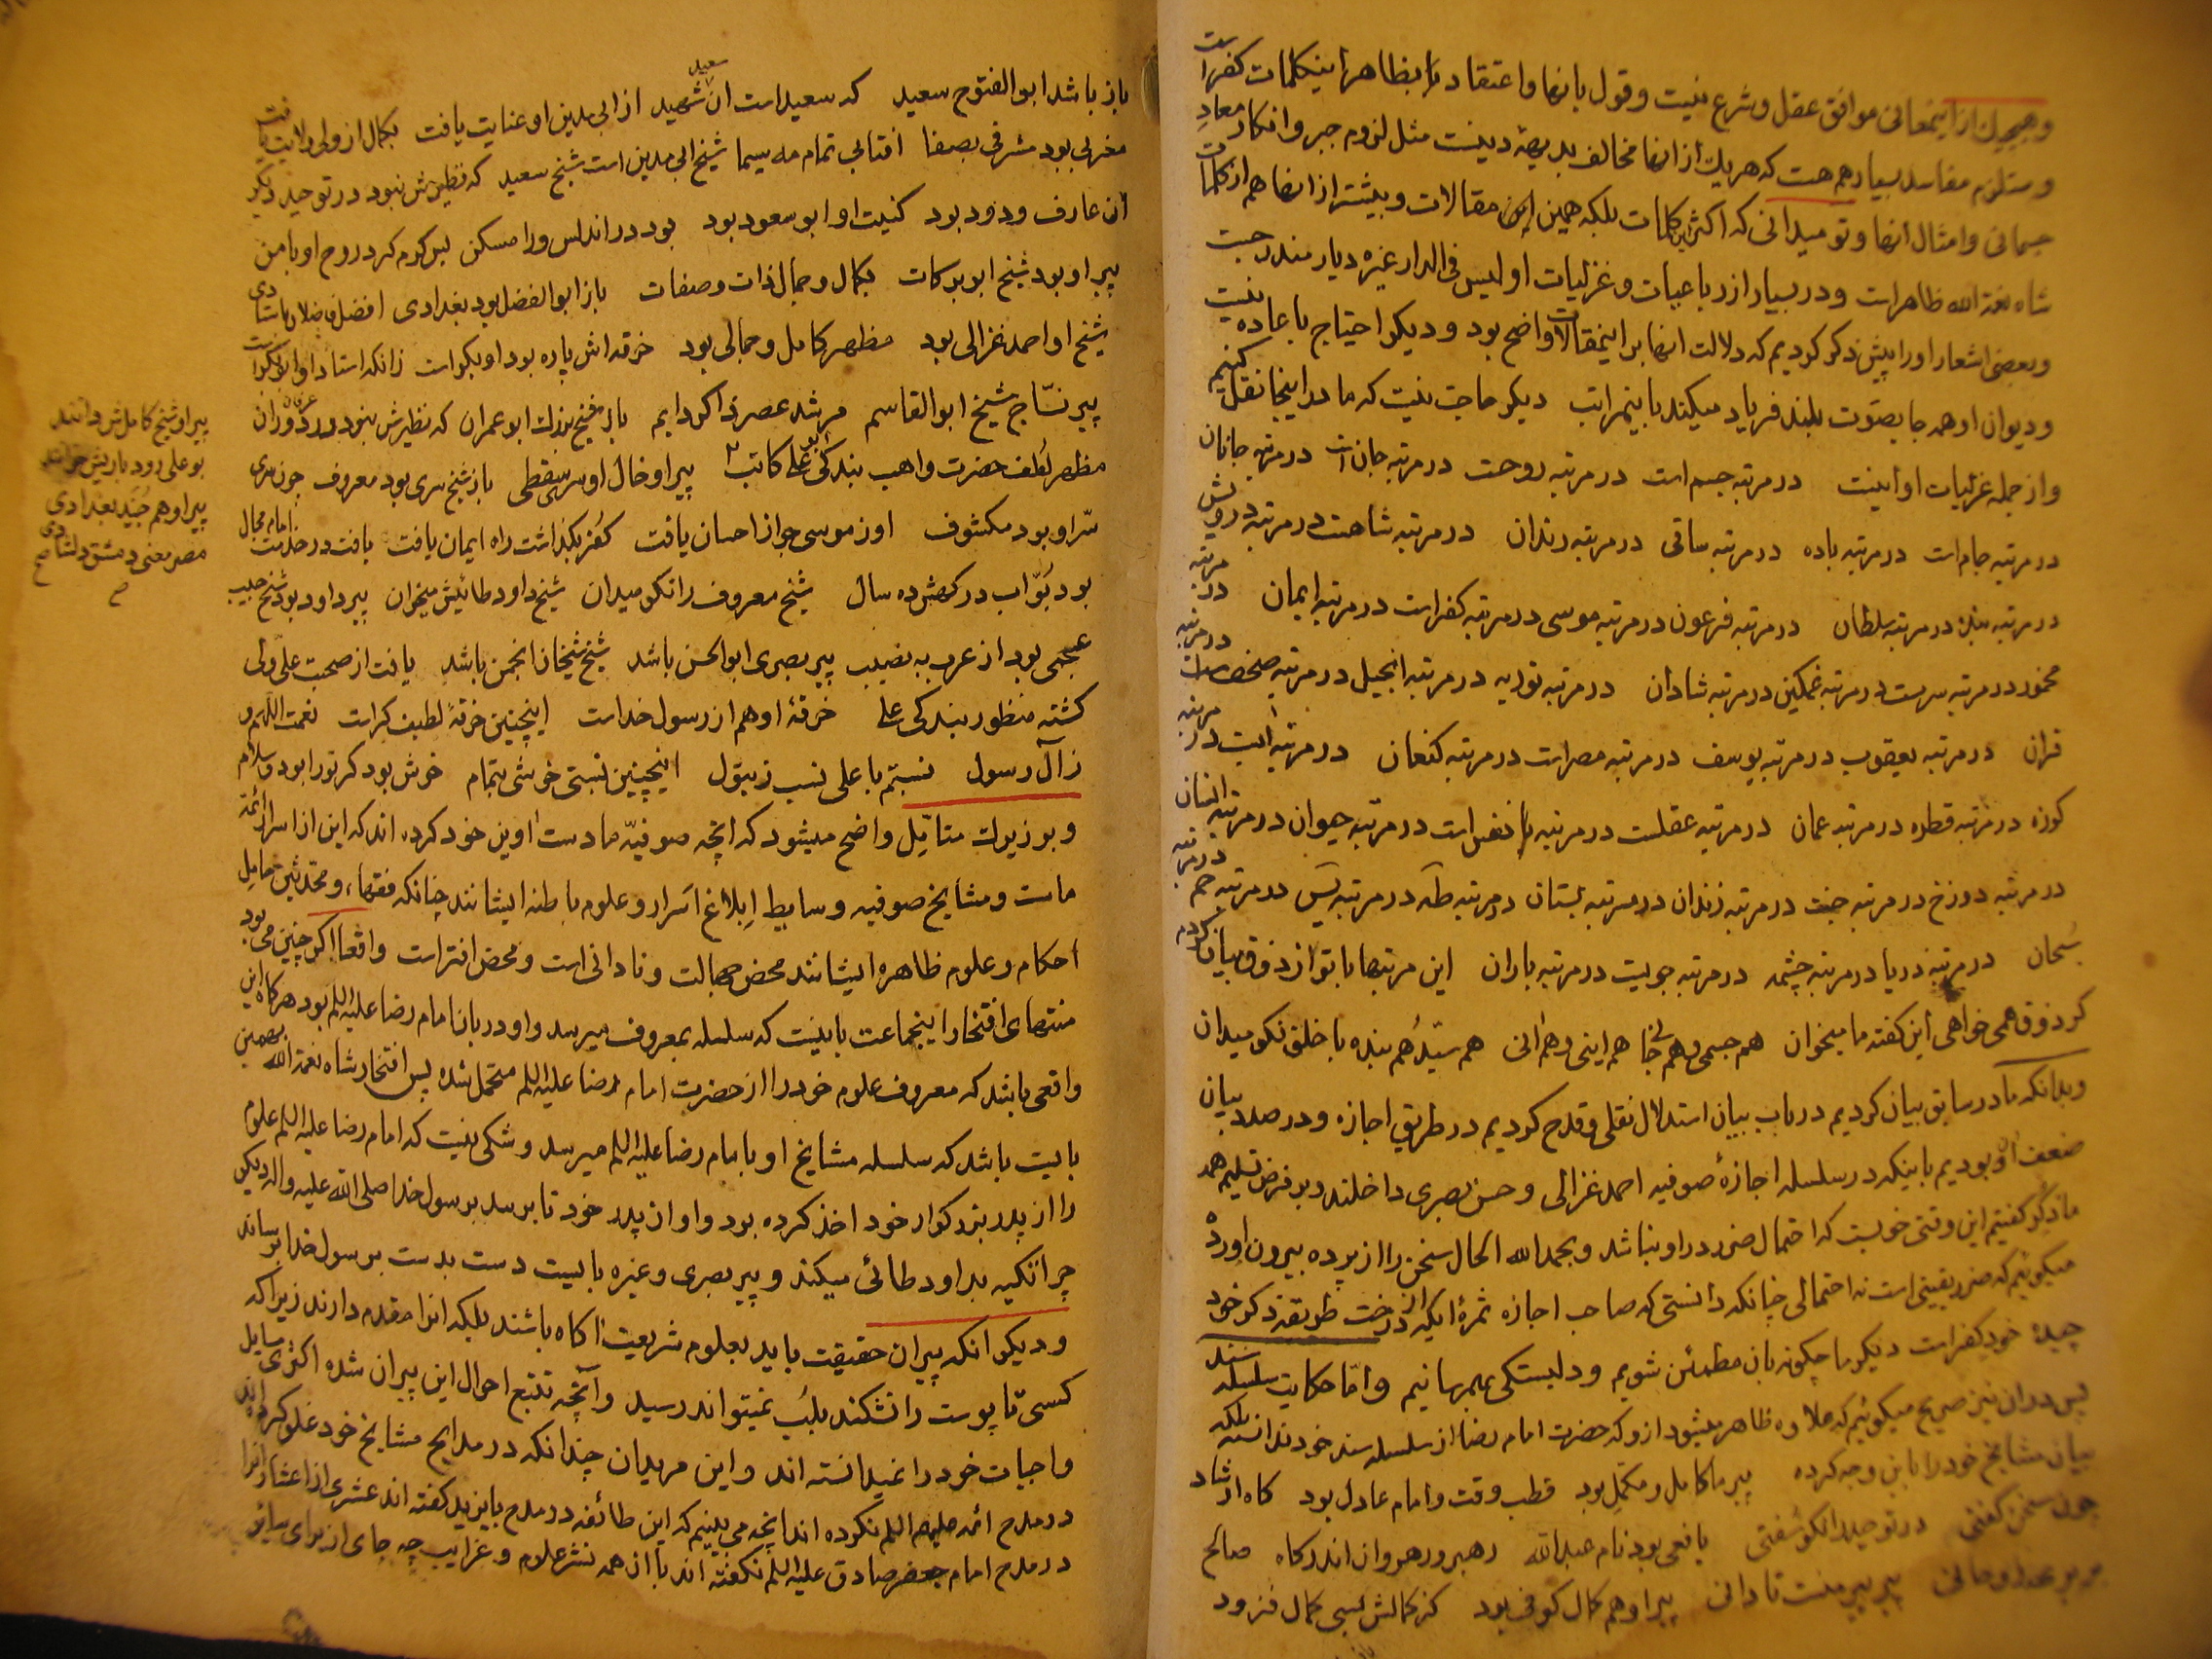 وهیچیك از اینمعانی موافق عقل و شرع نیست و قول بانها و اعتقاد بظاهر اینكلمات كفر است
و مستلزم مفاسد بسیار هم هست كه هریك از انها مخالف بدیهۀ دینست مثل لزوم جبر و انكار معاد
جسمانی و امثال انها و تو میدانی كه اكثر این كلمات بلكه همین مقالات و بیشتر از انها هم از كلمات
شاه نعمة الله ظاهر است و در بسیار از رباعیات و غزلیات او لیس فی الدار غیره دیار مندرجست
و بعضی اشعار او را پیش ذكر كردیم كه دلالت انها بر اینمقالات واضح بود و دیگر احتیاج باعاده نیست
و دیوان او همه جا بصوت بلند فریاد میكند باینمراتب دیگر حاجت نیست كه ما در اینجا نقل كنیم
و از جمله غزلیات او اینست در مرتبه جسم است در مرتبه روحست در مرتبه جان است در مرتبه جانان
در مرتبه جام است در مرتبه باده در مرتبه ساقی در مرتبه رندان در مرتبه شاهست در مرتبه درویش
در مرتبه بنده در مرتبه سلطان در مرتبه فرعون در مرتبه موسی در مرتبه كفر است در مرتبه ایمان در مرتبه
مخمور در مرتبه سرمست در مرتبه غمكین در مرتبه شادان در مرتبه توریه در مرتبه انجیل در مرتبه صحف است در مرتبه
قران در مرتبه یعقوب در مرتبه یوسف در مرتبه مصر است در مرتبه كنعان در مرتبه ابست در مرتبه
كوزه در مرتبه قطره در مرتبه عمان در مرتبه عقلست در مرتبه نفس است در مرتبه حیوان در مرتبه انسان
در مرتبه دوزخ در مرتبه جنت در مرتبه زندان در مرتبه بستان در مرتبه طه در مرتبه یس در مرتبه حم در مرتبه
سبحان در مرتبه دریا در مرتبه چشمه در مرتبه جویست در مرتبه باران این مرتبها با تو از ذوق بیان كردم
كر ذوق همی خواهی این كفته ما میخوان هم جسمی و هم جانی هم اینی و هم انی هم سید هم بنده با خلق نكو میدان
و بدانكه ما در سابق بیان كردیم در باب بیان استدلال نقلی و قدح كردیم در طریق اجازه و در صدد بیان
ضعف ان بودیم باینكه در سلسله اجازۀ صوفیه احمد غزالی و حسن بصری داخلند و بر فرض تسلیم همه
ما دیگر كفتیم این وقتی خوبست كه احتمال ضرر در او نباشد و بحمد الله الحال سخن را از پرده بیرون اورده
میكوئیم كه ضرر یقینی است نه احتمالی چنانكه دانستی كه صاحب اجازه ثمرۀ ایكه از درخت طریقه ذكر خود
چیده خود كفر است دیگر ما چكونه بان مطمئن شویم و دلبستكی بهم رسانیم و اما حكایت سلسله سند
پس در ان نیز صریح میكوئیم كه علاوه ظاهر میشود از و كه حضرت امام رضا از سلسله سند خود ندانسته بلكه
بیان مشایخ خود را باین وجه كرده پیر ما كامل و مكمل بود قطب وقت و امام عادل بود كاه ارشاد
چون سخن كفتی در توحید را نكو سفتی یافعی بود نام عبد الله رهبر و رهروان اندركاه صالح
بربر پیر پیر منست تا دانی پیر او هم كمال كوفی بود كز كمالش بسی كمال فزود
باز باشد ابو الفتوح سعید كه سعید است ان سعید شهید از ابی مدین او عنایت یافت بكمال از ولی ولایت یافت
مغربی بود مشرقی بصفا افتابی تمام مه سیما شیخ ابی مدین است شیخ سعید كه نظیرش نبود در توحید دیگر
ان عارف ودود بود كنیت او ابو سعود بود بود در اندلس ورا مسكن بس كرم كرد روح او با من
پیر او بود شیخ ابو بركات بكمال و جمال ذات و صفات باز ابو الفضل بود بغدادی افضل فاضلان باستادی
شیخ او احمد غزالی بود مظهر كامل و جمالی بود خرقه اش پاره بود او بكر است زانكه استاد او ابو بكر است
پیر نسّاج شیخ ابو القاسم مرشد عصر ذاكر دایم باز شیخ بزرك ابو عمران كه نظیرش نبود در دوران
مظهر لطف حضرت واهب بندگی بو علی كاتب پیر او خال او سری سقطی باز شیخ سری بود معروف چون سری
سّر او بود مكشوف او ز موسی جواز احسان یافت كفر بكذاشت راه ایمان یافت یافت در خدمت امام مجال
بود بوّاب دركهش ده سال شیخ معروف را نكو میدان شیخ داود طائیش میخوان پیر داود بود شیخ حبیب
عجمی بود از عرب به نصیب پیر بصری ابو الحسن باشد شیخ شیخان انجمن باشد یافت از صحبت علی ولی
كشته منظور بندكی علی خرقۀ او هم از رسول خداست اینچنین خرقۀ لطیف كراست نعمت اللهم و
ز آل رسول نسبتم با علی نسب ز بتول اینچنین نسبتی خوشی بتمام خوش بود كر تو را بود و سلام
و بر زیرك متأمّل واضح میشود كه انچه صوفیّه ما دست اویز خود كرده اند كه این از اسرار ائمّة
ماست و مشایخ صوفیه و سایط ابلاغ اسرار و علوم باطنه ایشانند چنانكه فقهاء و محدثین حامل
احكام و علوم ظاهره ایشانند محض جهالت و نادانی است و محض افتراست واقعا اكر چنین می بود
منتهای افتخار اینجماعت باینست كه سلسله بمعروف میرسد و او دربان امام رضا علیه السلم بود هر كاه این
واقعی باشد كه معروف علوم خود را از حضرت امام رضا علیه السلم متحمل شده پس افتخار شاه نعمة الله بهمین
بایست باشد كه سلسله مشایخ او بامام رضا علیه السلم میرسد و شكی نیست كه امام رضا علیه السلم علوم
را از پدر بزركوار خود اخذ كرده بود و او از پدر خود تا برسد برسول خدا صلی الله علیه و اله دیگر
چرا تكیه بداود طائی میكند و پیر بصری و غیره بایست دست بدست برسول خدا برساند
و دیگر انكه پیران حقیقت باید بعلوم شریعت اكاه باشند بلكه انرا مقدم دارند زیرا كه
كسی تا پوست را نشكند بلبّ نمیتواند رسید و آنچه تتبع احوال این پیران شده اكثری مسایل
واجبات خود را نمیدانسته اند و این مریدان چندانكه در مدایح مشایخ خود غلو كرده اند
در مدح ائمه علیهم السلم نكرده اند انچه می بینیم كه این طائفه در مدح بایزید كفته اند عشری از اعشار انرا
در مدح امام جعفر صادق علیه السلم نكفته اند با ان همه نشر علوم و غرایب چه جای از برای سایر
پیر او شیخ كاملش دانند
بو علی رودباریش خوانند
پیر او هم جنید بغدادی
مصر معنی دمشق دلشادی
صح